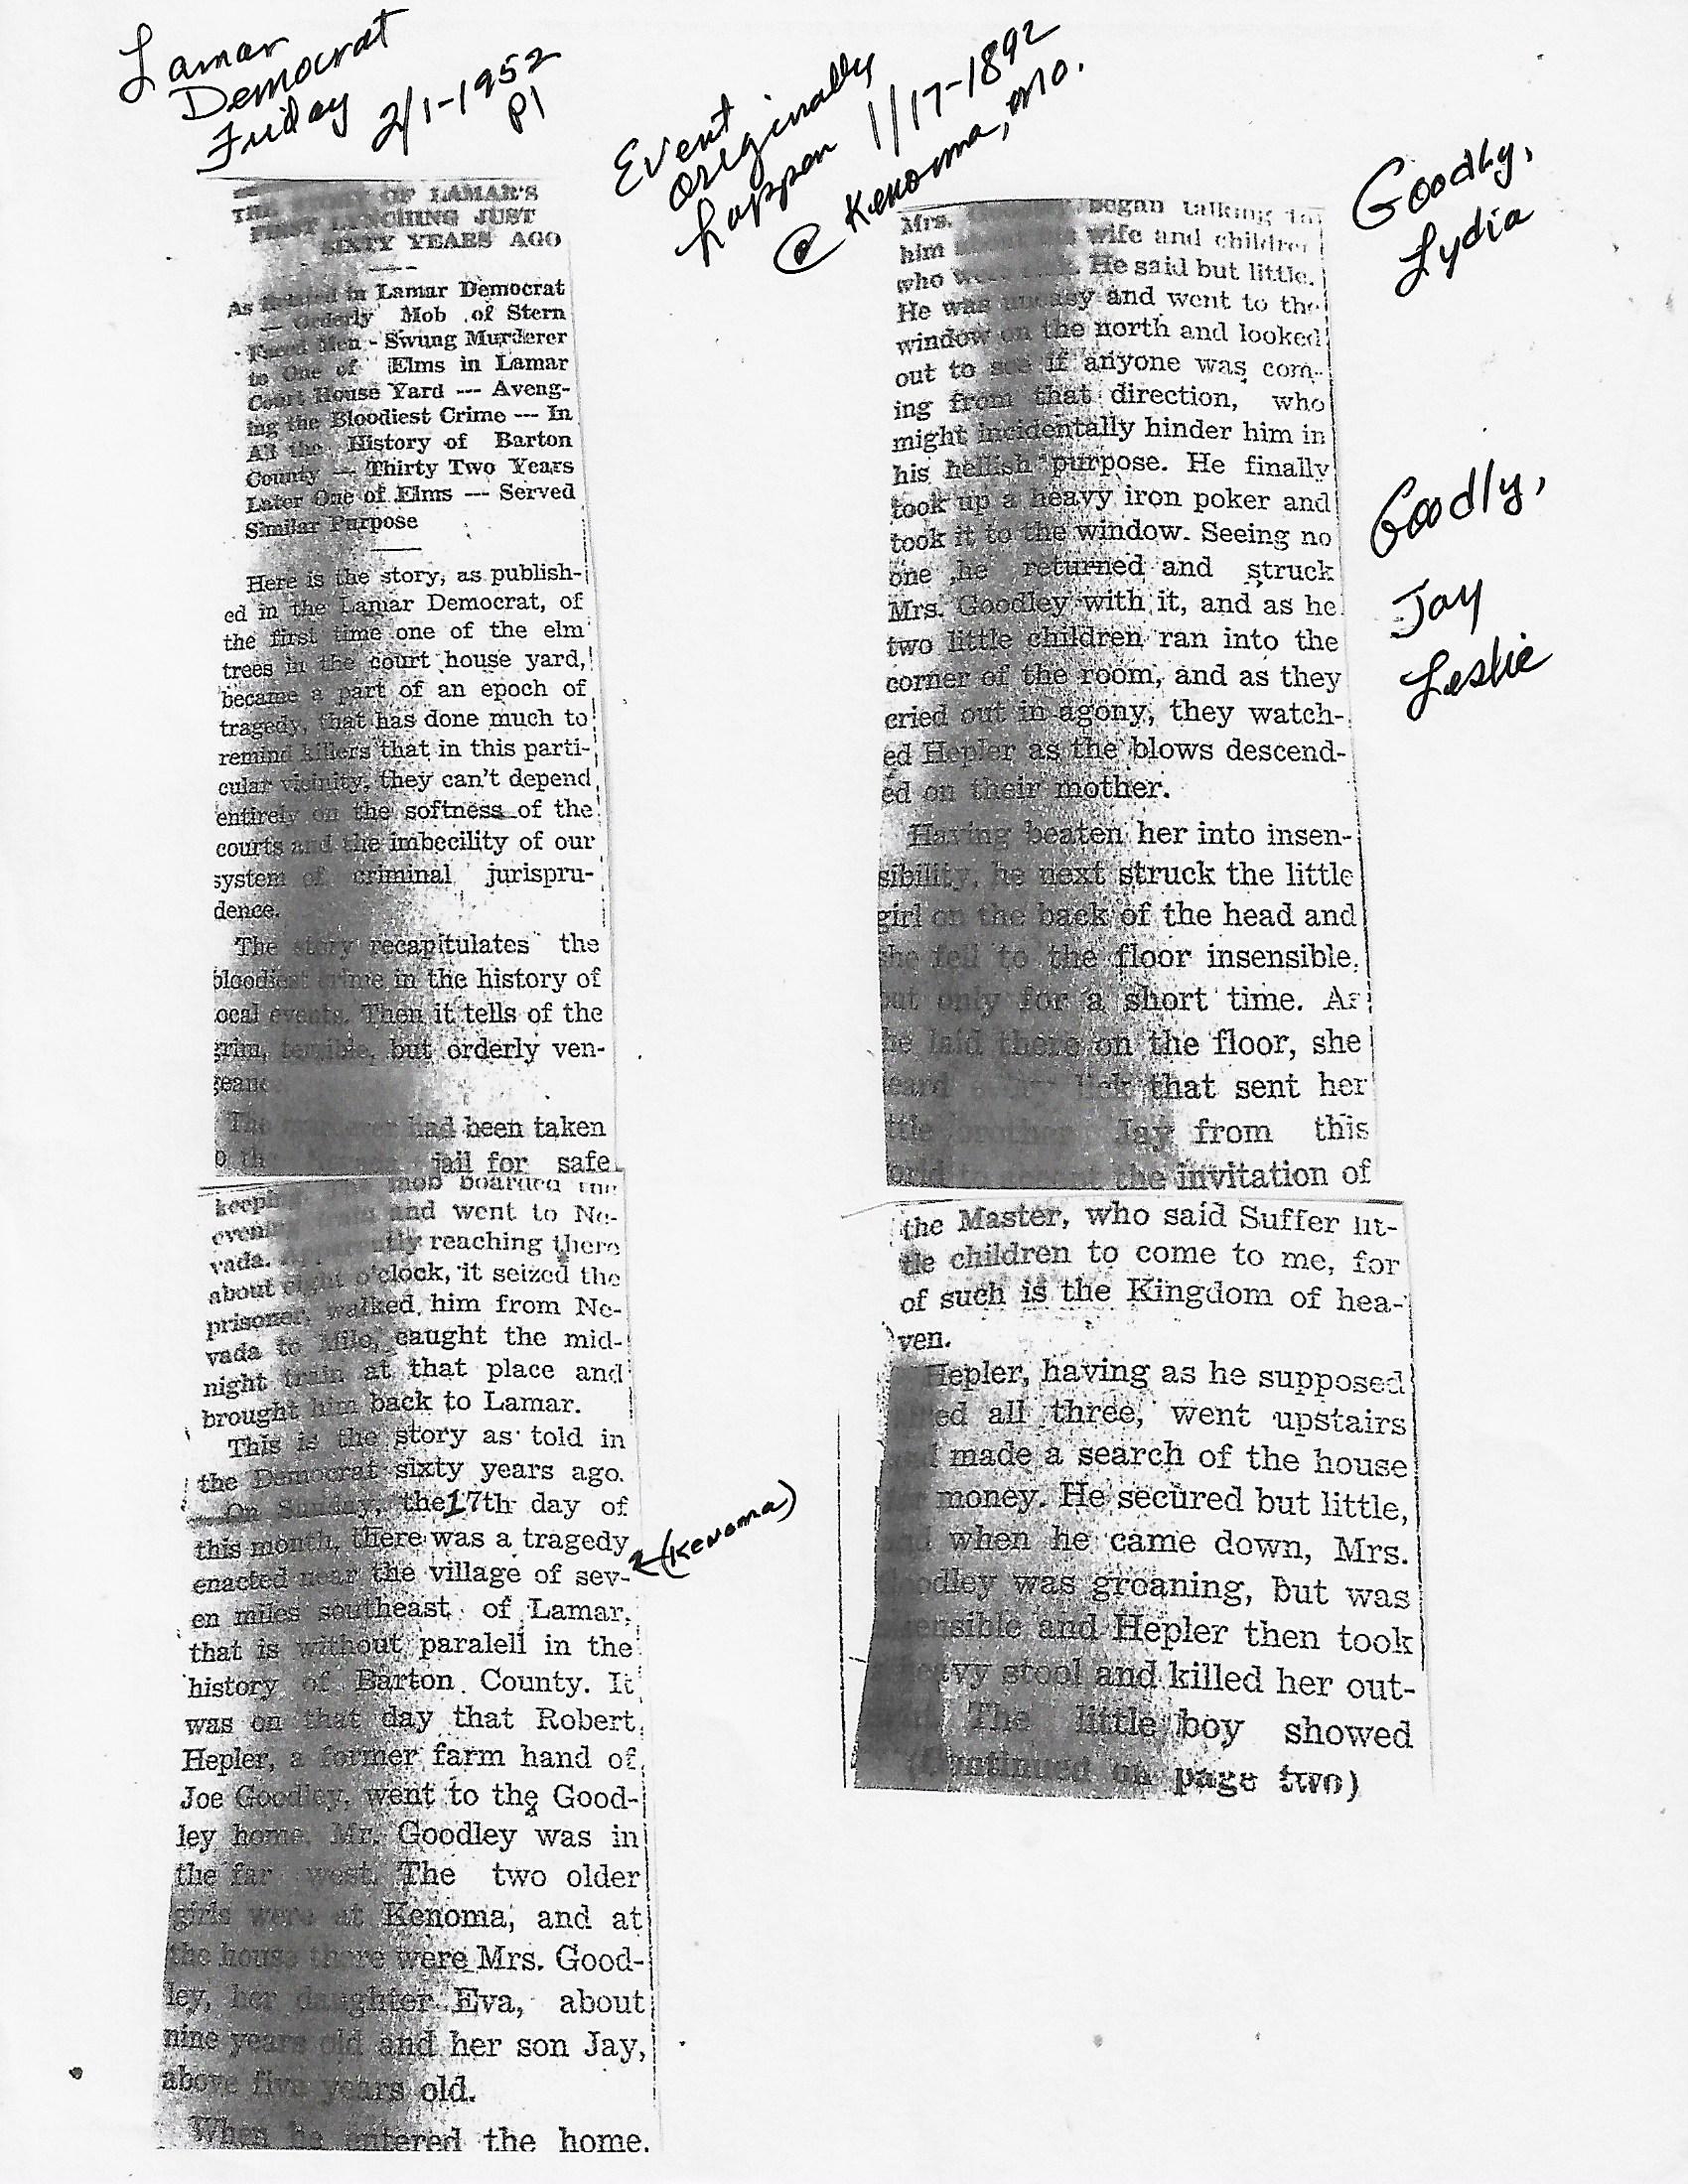 Lamar
Democrat
Friday 2/1-1952
P1
Event
Originally
happen 1/17-1892
@ Kenoma, Mo.
Goodly,
Lydia
Goodly,
Jay
Leslie
THE STORY OF LAMAR'S
FIRST LYNCHING JUST
SIXTY YEARS AGO
As in Lamar Democrat
— Orderly Mob of Stern
Faced Men - Swung Murderer
to One of Elms in Lamar
Court House Yard --- Aveng-
ing the Bloodiest Crime --- In
All the History of Barton
County — Thirty Two Years
Later One of Elms --- Served
Similar Purpose
Here is the story, as publish-
ed in the Lamar Democrat, of
the first time one of the elm
trees in the court house yard,
became a part of an epoch of
tragedy, that has done much to
remind killers that in this parti-
cular vicinity, they can't depend
entirely on the softness of the
courts and the imbecility of our
system of criminal jurispru-
dence.
The story recapitulates the
bloodiest crime in the history of
ocal events. Then it tells of the
grim, terrible, but orderly ven-
geanc
The had been taken
o th jail for safe
keeping The mob boarded the
evening train and went to Ne-
vada. Apparently reaching there
about eight o'clock, it seized the
prisoner, walked him from Ne-
vada to Milo, caught the mid-
night train at that place and
brought him back to Lamar.
This is the story as told in
the Democrat sixty years ago.
On Sunday, the 17th day of
this month, there was a tragedy
enacted near the village of sev- (Kenoma)
en miles southeast of Lamar,
that is without paralell in the
history of Barton County. It
was on that day that Robert
Hepler, a former farm hand of
Joe Goodley, went to the Good-
ley home. Mr. Goodley was in
the far west. The two older
girls were at Kenoma, and at
the house there were Mrs. Good-
ley, her daughter Eva, about
nine years old and her son Jay,
above five years old.
When he entered the home.
Mrs. began talking to
him wife and children
who were He said but little.
He was uneasy and went to the
window on the north and looked
out to see if anyone was com-
ing from that direction, who
might incidentally hinder him in
his hellish purpose. He finally
took up a heavy iron poker and
took it to the window. Seeing no
one ,he returned and struck
Mrs. Goodley with it, and as he
two little children ran into the
corner of the room, and as they
cried out in agony, they watch-
ed Hepler as the blows descend-
ed on their mother.
Having beaten her into insen-
sibility, he next struck the little
girl on the back of the head and
she fell to the floor insensible.
but only for a short time. As
he laid there on the floor, she
eard lick that sent her
ttle brother Jay from this
orld to the invitation of
the Master, who said Suffer lit-
tle children to come to me, for
of such is the Kingdom of hea-
ven.
Hepler, having as he supposed
all three, went upstairs
made a search of the house
money. He secured but little,
when he came down, Mrs.
odley was groaning, but was
ensible and Hepler then took
eavy stool and killed her out-
The little boy showed
(Continued on page two)